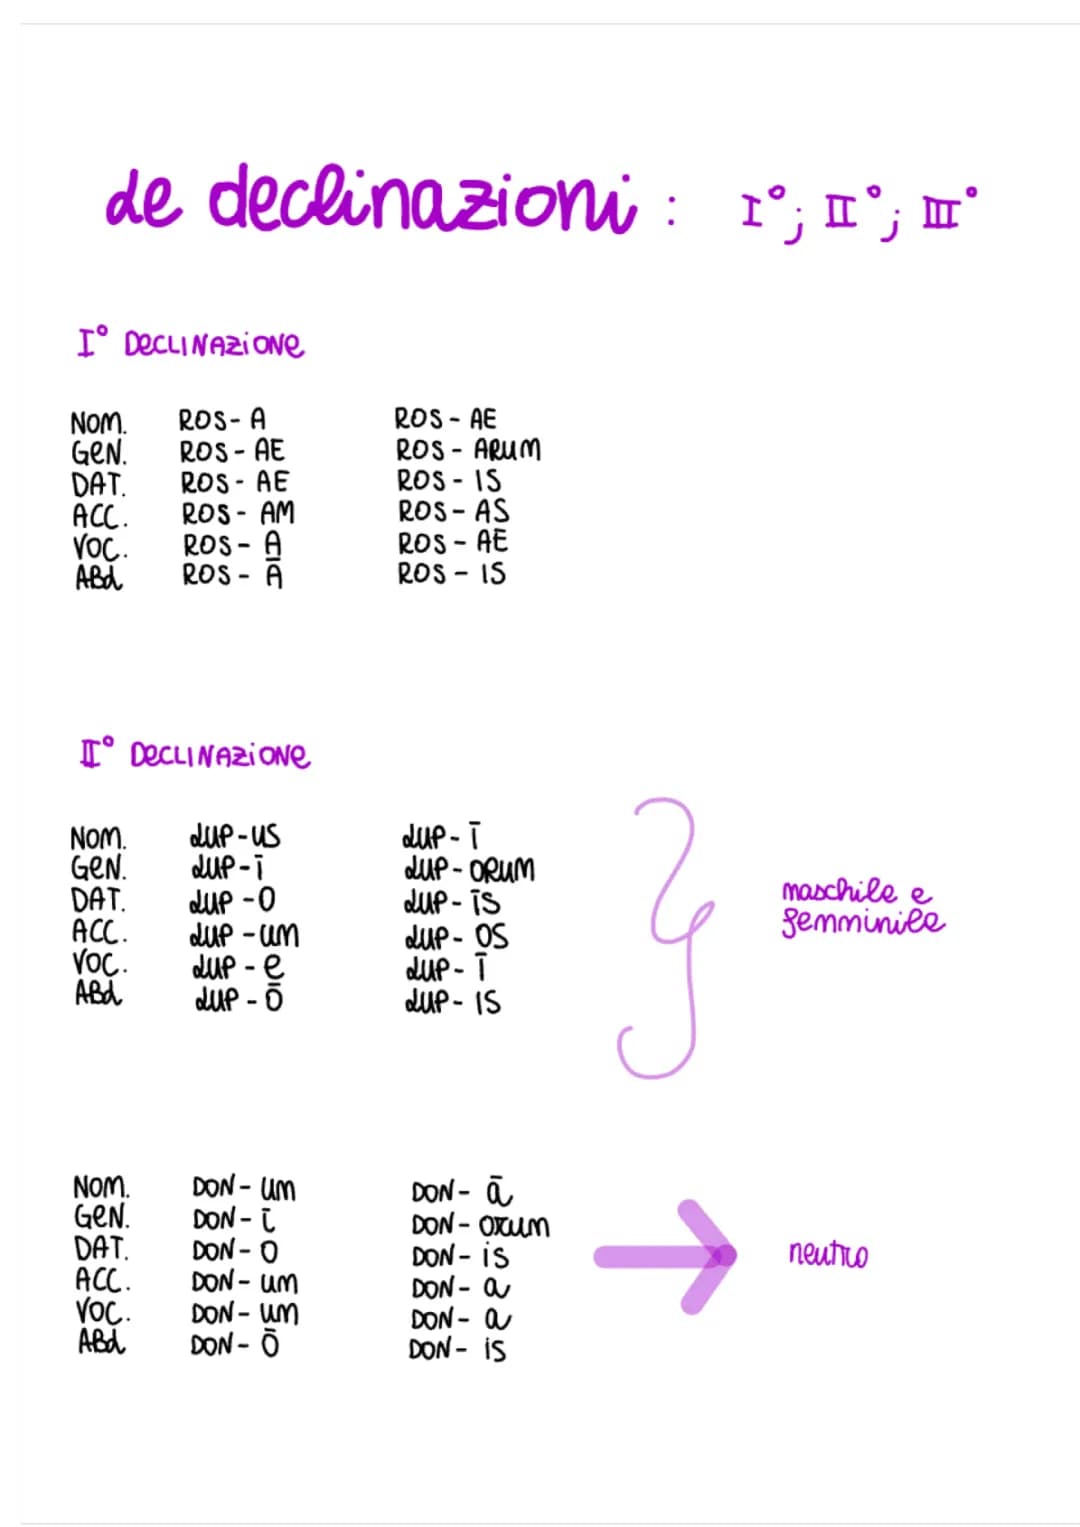 Le declinazioni : I°; II°; III°
I° DECLINAZIONE
NOM. ROS- A ROS - AE
GEN. ROS - AE ROS - ARUM
DAT. ROS - AE ROS - IS
ACC. ROS - AM ROS - AS
VOC. ROS - A ROS - AE
ABL ROS - Ā ROS - IS
II° DECLINAZIONE
NOM. LUP - US LUP - Ī
GEN. LUP - ī LUP - ORUM
DAT. LUP - O LUP - īS
ACC. LUP - um LUP - OS
VOC. LUP - e LUP - Ī
ABL LUP - Ō LUP - IS
maschile e
femminile
NOM. DON - um DON - ā
GEN. DON - ī DON - orum
DAT. DON - O DON - is
ACC. DON - um DON - a
VOC. DON - um DON - a
ABL DON - Ō DON - is
neutro